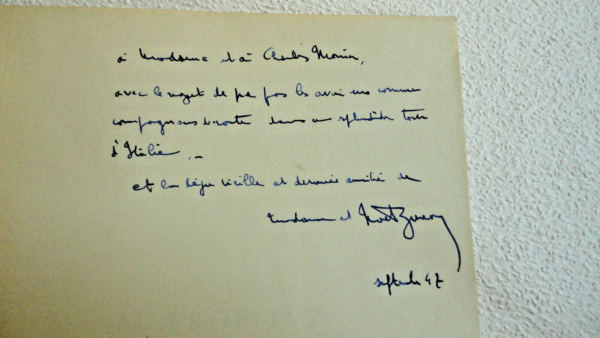 à Madame et à Charles Morin,
avec le regret de ne pas les avoir eus comme
compagnons de route dans un splendide tour
d'Italie. –
et la déjà vieille et dévouée amitié de
Madame et
septembre 47